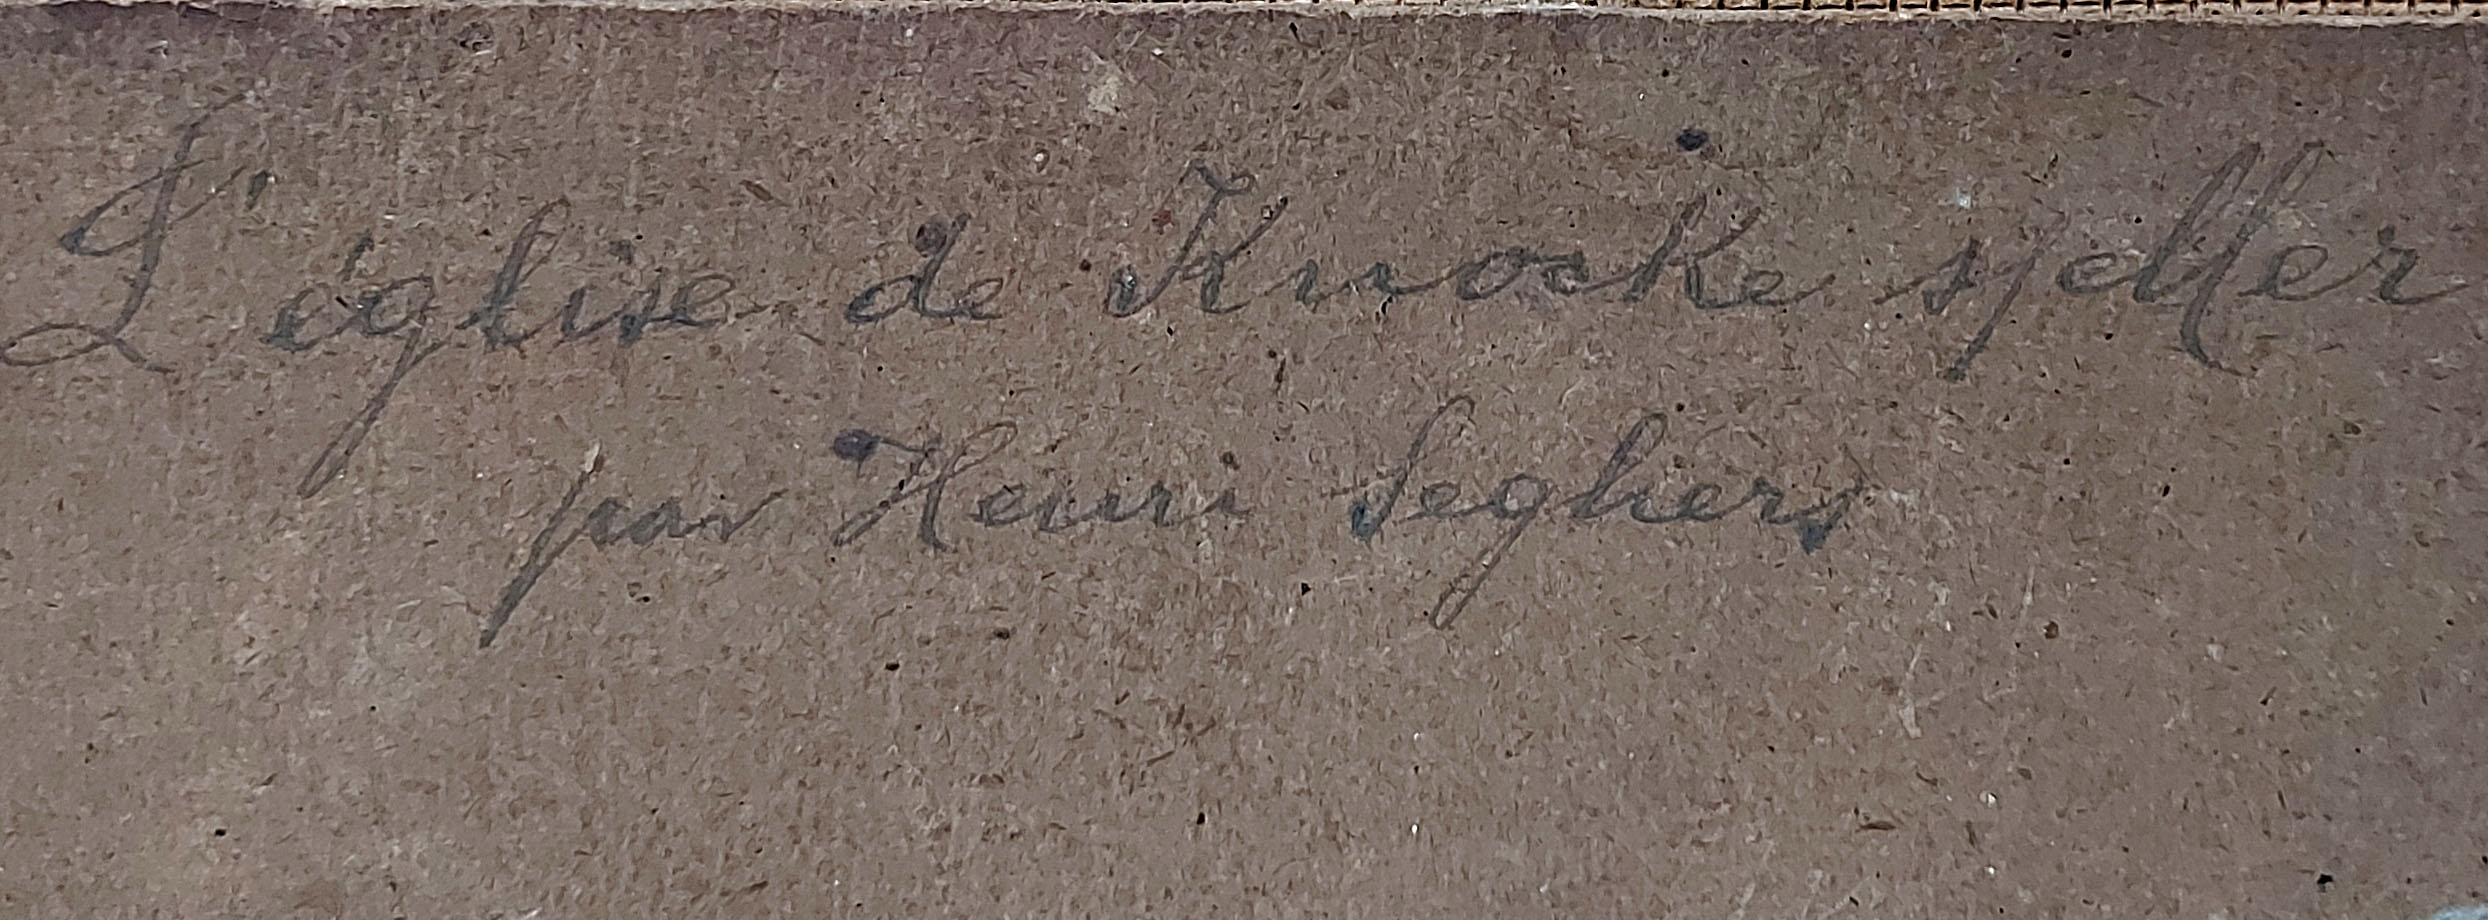 L'église de Knocke
par Henri Seghers